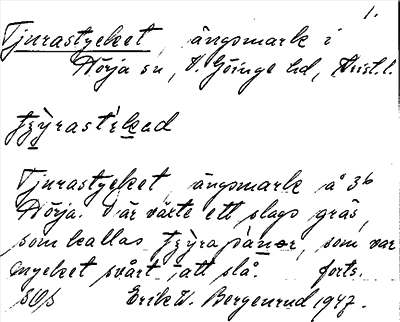 1.
Tjurastycket, ängsmark i
Nörja sn, V. Göinge hd, Krist.l.
Tjurastycket, ängsmark å 36
Nörja. Där växte ett slags gräs,
som kallas som var
mycket svårt att slå. forts.
SOS Erik W. Bergenrud 1947.